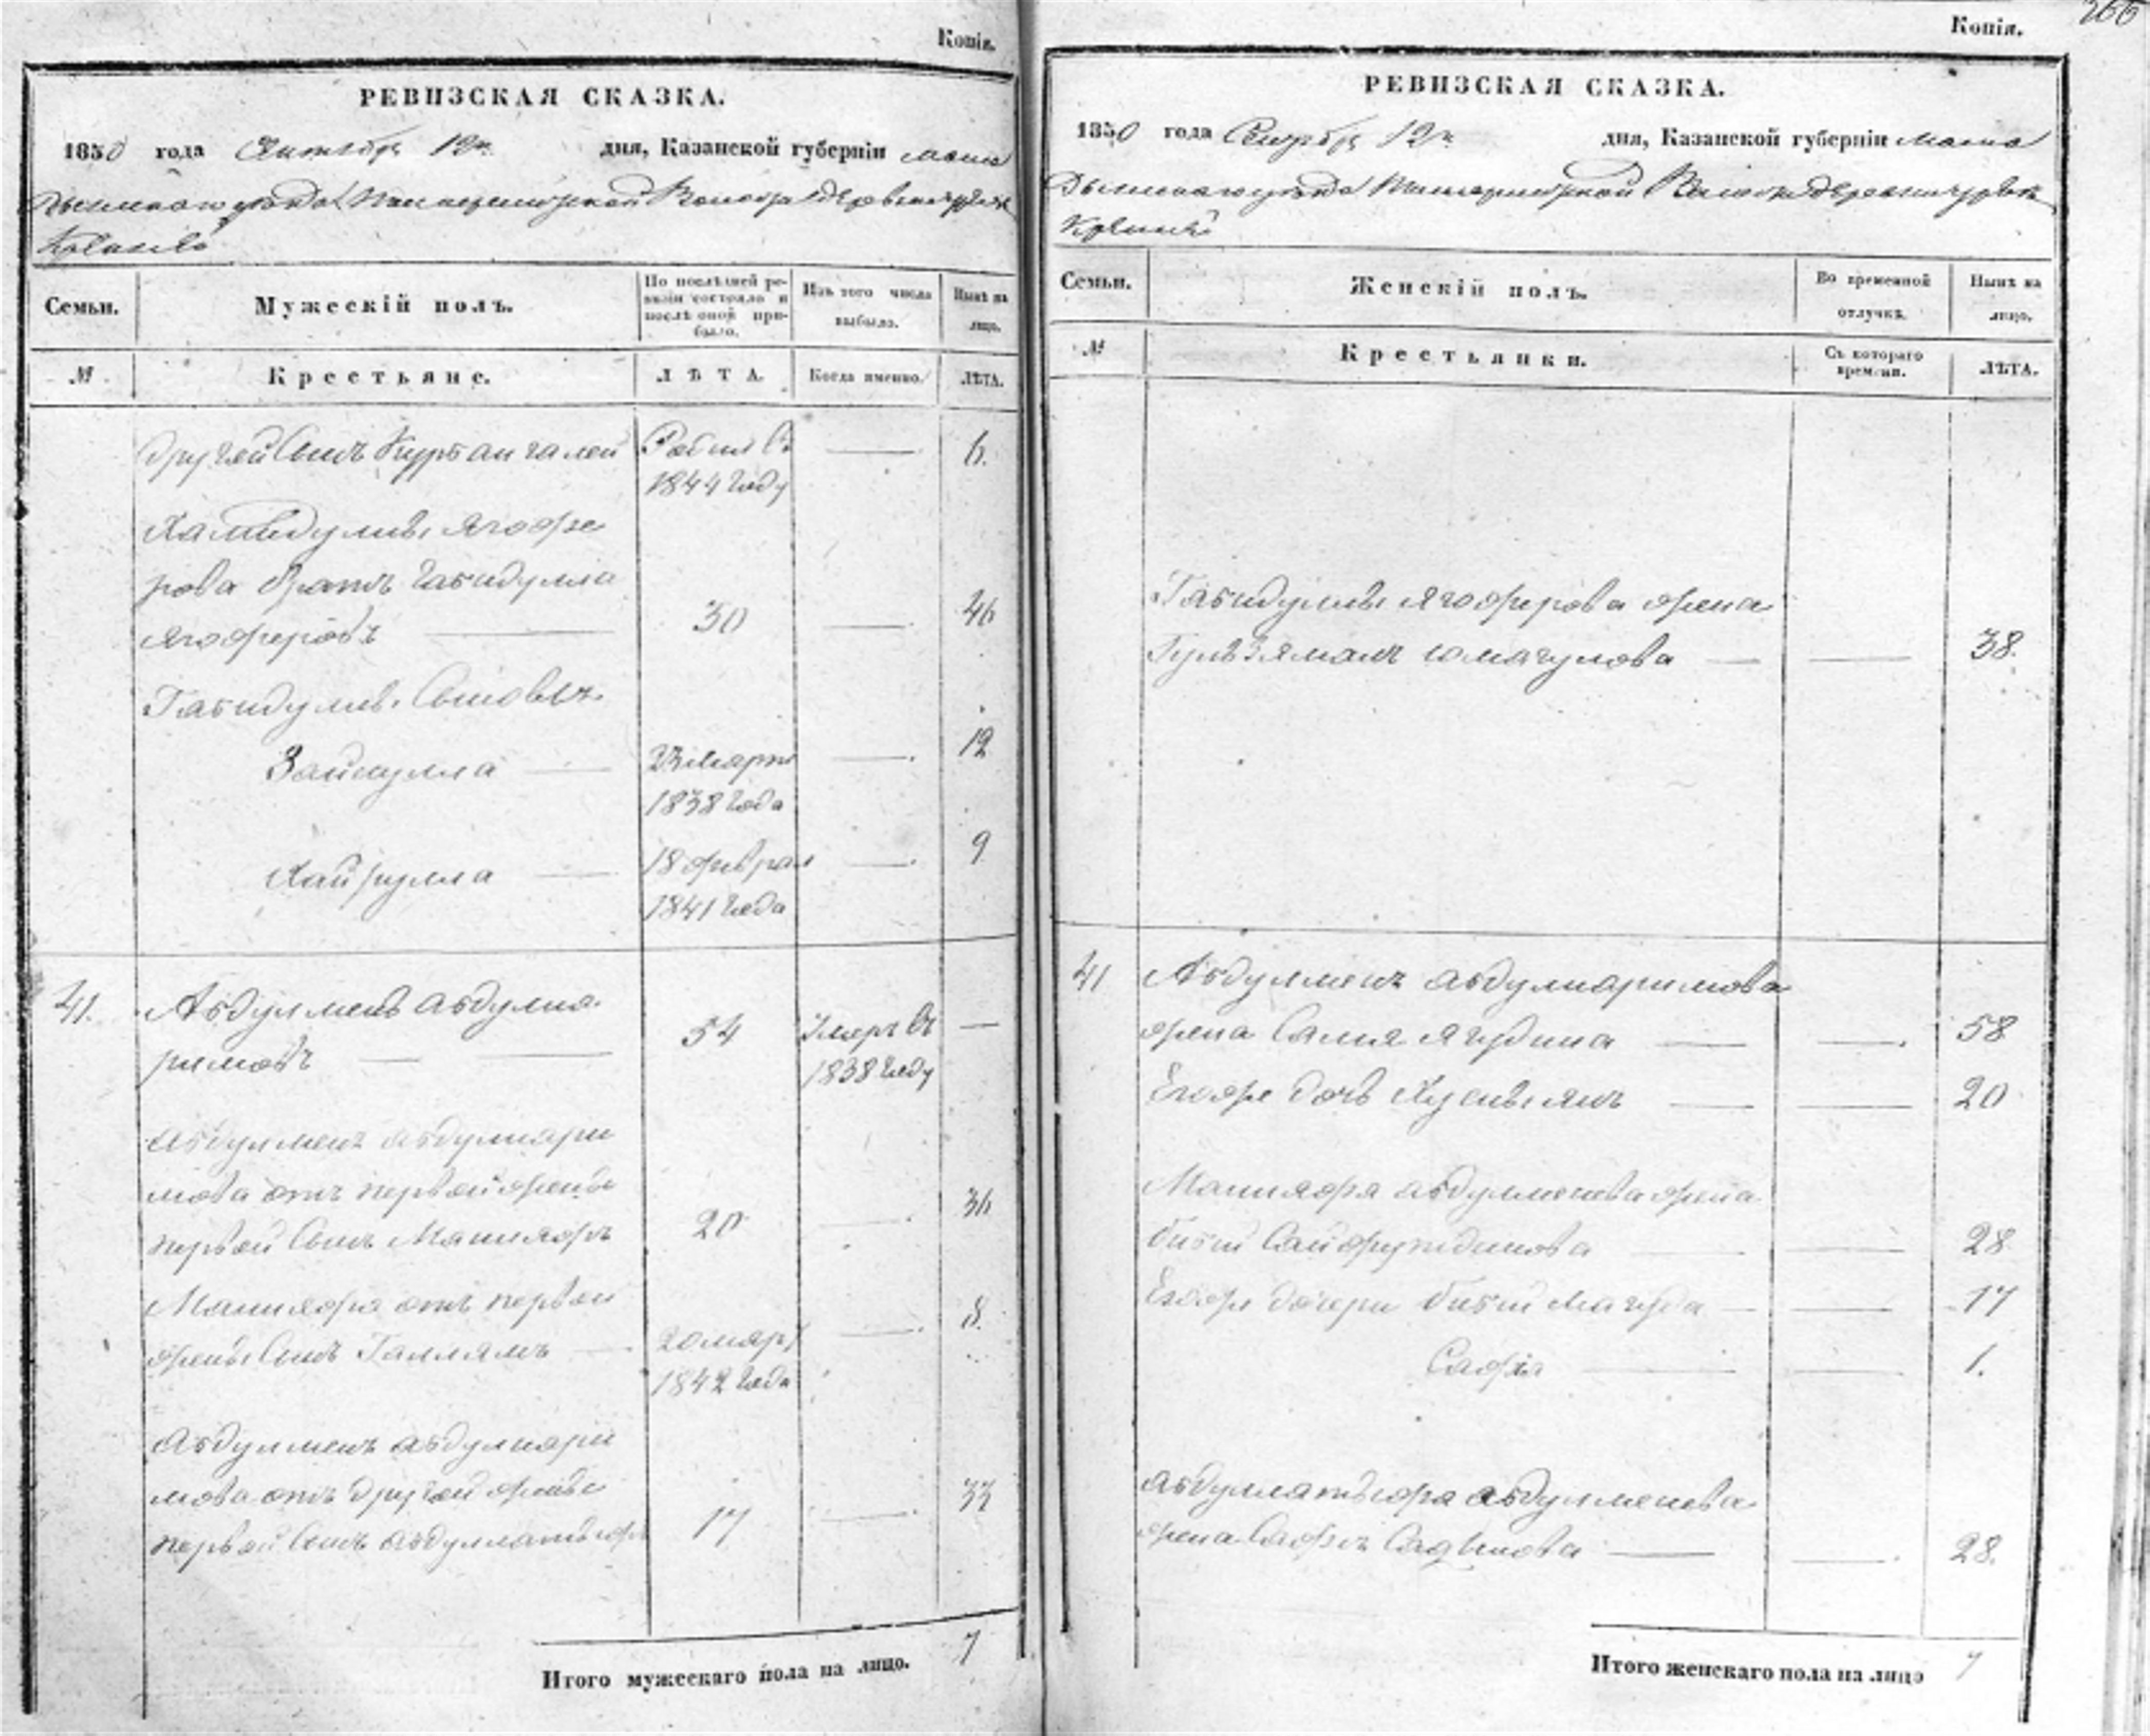 Копія.
РЕВИЗСКАЯ СКАЗКА.
1850 года Октября 12 дня, Казанской губерніи мама
дышскаго уѣзда волости деревни
Семьи.
Мужескій полъ.
По послѣдней ре-
визіи состояло и
послѣ оной при-
было.
Изъ того числа
выбыло.
Нынѣ на
лицо.
№
Крестьяне.
ЛѢТА.
Когда именно.
ЛѢТА.
другой Сынъ Курбангалей Родил. Въ — 6.
1844 году
Хамидуллы Ягофе
рова братъ Габидулла
Ягоферовъ — 30 — 46
Габидуллы Сыновья
Зайнулла — 23 Марта — 12
1838 года
Хайрулла — 18 феврал — 9
1841 года
41. Абдулменъ Абдулка
римовъ — 54 Умеръ Въ —
1838 году
Абдулменъ Абдулкари
мова отъ первой жены
первой Сынъ Манияфъ 20 — 36
Манияфа отъ первой
жены Сынъ Галлямъ — 20 март — 8.
1842 года
Абдулменъ Абдулкари
мова отъ другой жены
первой Сынъ Абдуллатыфъ 17 — 33
Итого мужескаго пола на лицо. 7
266
Копія.
РЕВИЗСКАЯ СКАЗКА.
1850 года 12 дня, Казанской губерніи мама
дышскаго уѣзда волости деревни
Семьи.
Женскій полъ.
Во временной
отлучкѣ.
Нынѣ на
лицо.
№
Крестьянки.
Съ котораго
времени.
ЛѢТА.
Габидуллы Ягоферова жена
Гульзямалъ Юмагулова — — 38.
41 Абдулменъ Абдулкаримова
жена Салия Ягудина — — 58
Егоже дочь — — 20
Манияфа Абдулменева жена
биби Сайфутдинова — — 28
Егоже дочери биби Магруа — — 17
Сафія — — 1.
Абдуллатыфа Абдулменева
жена Садыкова — — 28.
Итого женскаго пола на лицо 7